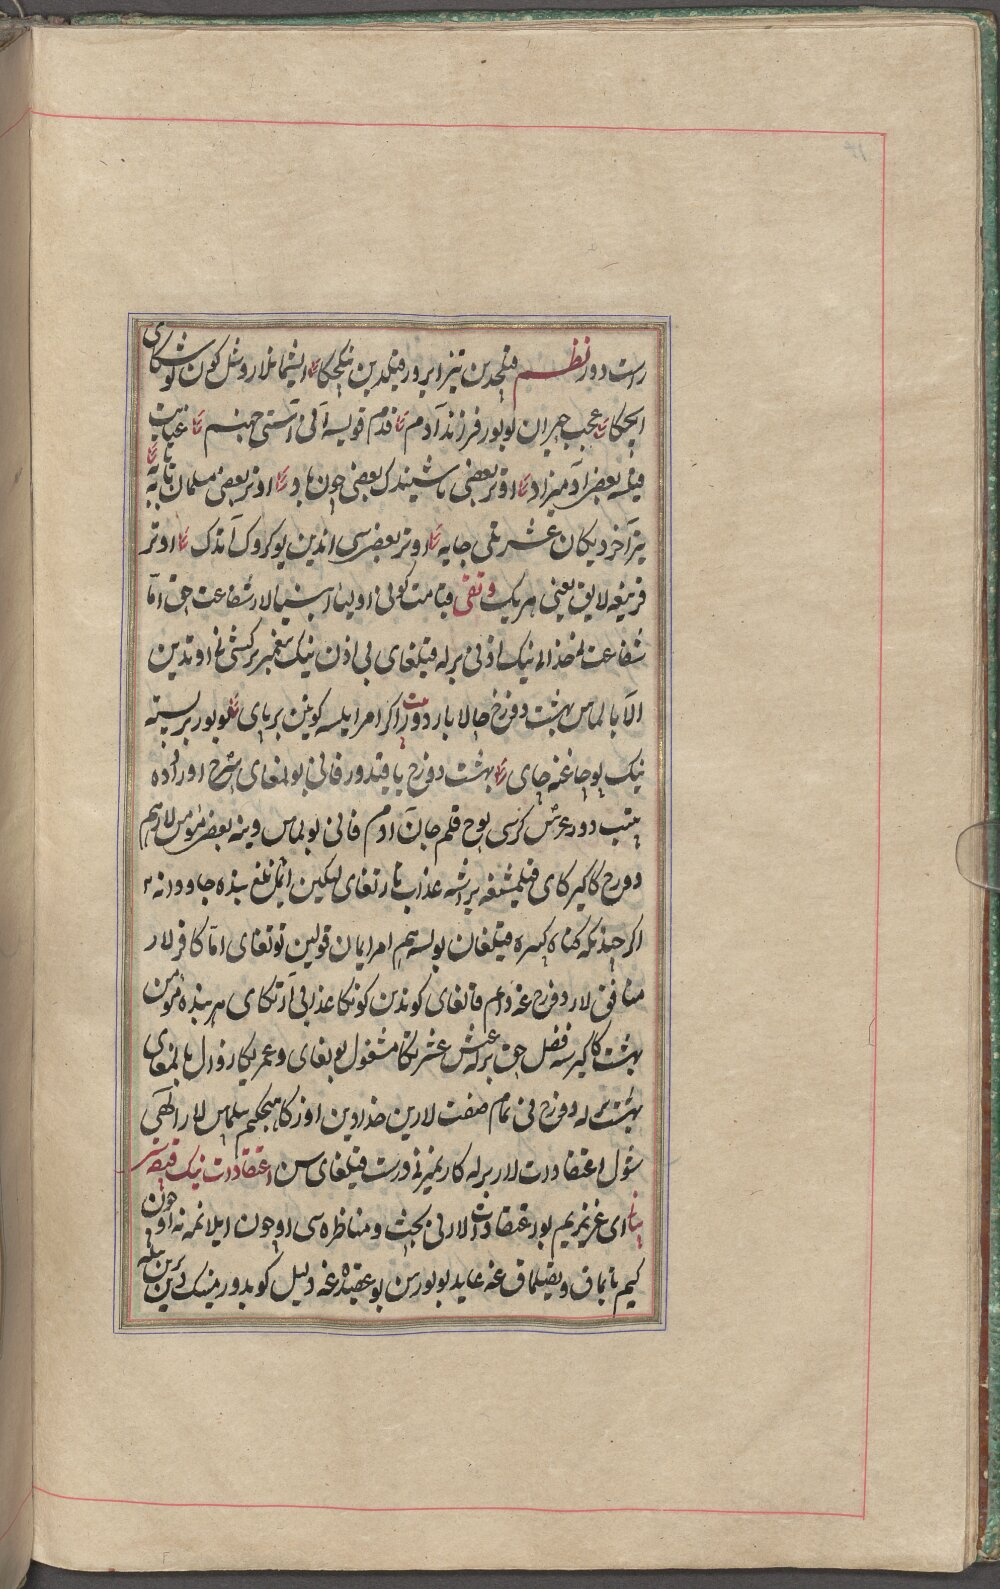 راست دور نظم قیلچدین تیزایرور قیلدین اینچکا ایشیمانلار و شل کون توشکای
ایچکا عجب حیران بولور فرزند آدم قدم قویسه آنی آستی جهنم عنایت
قیلسه بعض آدمیزاد اوتر بعضی یاشیندک بعضی چون باد اوتر بعضی مسلمان پایه پایه
یتر آخر دیکان عشرتلی جایه اوتر بعضی سی اندین یوکروک آتدک اوتر
قرنیغه لایق یعنی هریک وتقی قیامت کونی اولیا انبیالار شفاعت حق اما
شفاعت نی خدانینک اذنی برله قیلغای بی اذن نینک پیغمبر کشی نی اوتدین
الا بالماس بهشت دوزخ حالا بار دور بیت اکر امر ایلسه کونین بربای بولور بر پسته
نینک پوچاغنه جای بهشت دوزخ باقیدور فانی بولمغای شرح اوزاده
یتیب دور عرش کرسی لوح قلم جان آدم فانی بولماس وینه بعض مؤمن لار هم
دوزخ کا کیرکای قیلمیشغه یراشه عذاب تارتغای لیکین انینک بنده جاودانه
اکر چندیکه کناه کبیره قیلغان بولسه هم امر ایمان قولین توتغای اما کافرلار
منافق لار دوزخ غه دایم قالغای کوندین کونکا عذابی آرتکای هر بنده مؤمن
بهشت کا کیرسه فضل حق برله عیش عشرتکا مشغول بولغای وعمریکا زوال بولمغای
بهشت برله دوزخ نی تمام صفت لارین خدادین اوزکا هیچکیم بیلماس لار الهی
شول اعتقادات لار برله کاریمیزنی درست قیلغای سن اعتقادات نینک قیصه سی
بیانی ای عزیزیم بو اعتقادات لارنی بحث و مناظره سی اوچون ایلانمه نه اوچون
کیم تابماق و یقیلماق غه عاید بولورسن بو عقیده غه دلیل کوبدور مینک دین بیرین